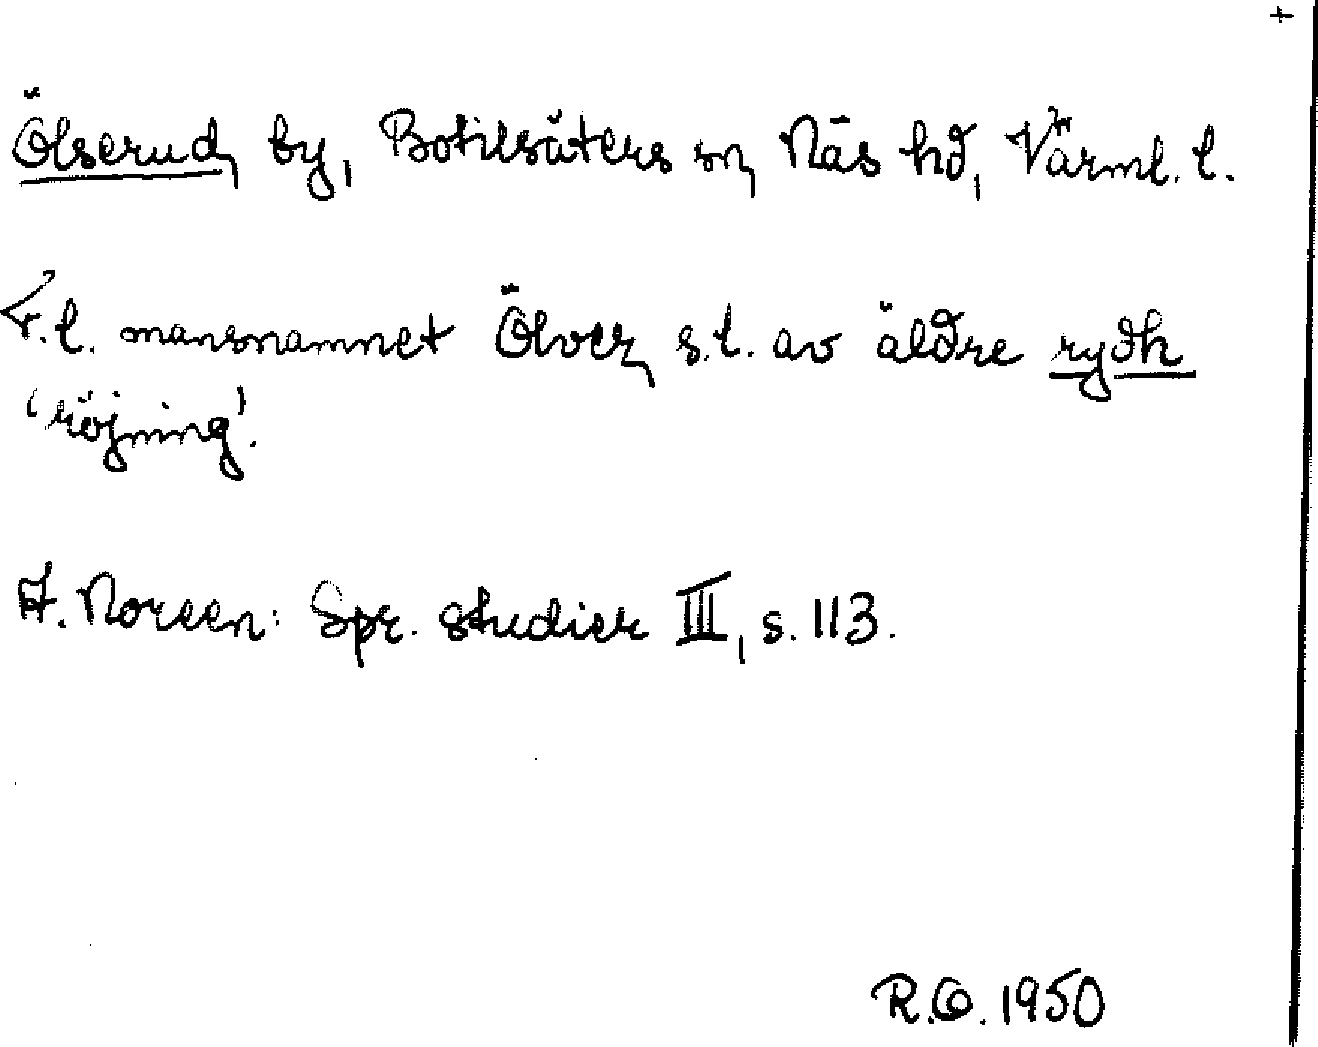 +
Ölserud, by, Botilsäters sn, Näs hd, Värml. l.
F.l. mansnamnet Ölver, s.l. av äldre rydh
'röjning'.
A. Noreen: Spr. studier III, s. 113.
R.O. 1950